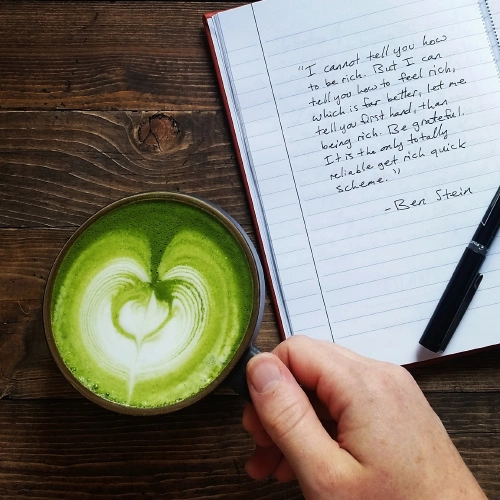 "I cannot tell you how
to be rich. But I can
tell you how to feel rich,
which is far better, let me
tell you first hand, than
being rich. Be grateful.
It is the only totally
reliable get rich quick
scheme."
-Ben Stein